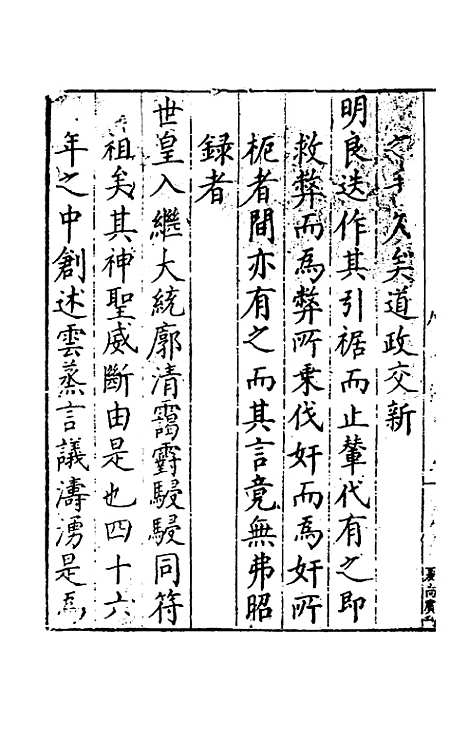 之手久矣道政交新
明良迭作其引裾而止輦代有之即
救弊而為弊所乗伐奸而為奸所
柅者間亦有之而其言竟無弗昭
録者
世皇入繼大統廓清靄霨駸駸同符
祖矣其神聖威斷由是也四十六
年之中創述雲蒸言議濤湧是
夏尚賓